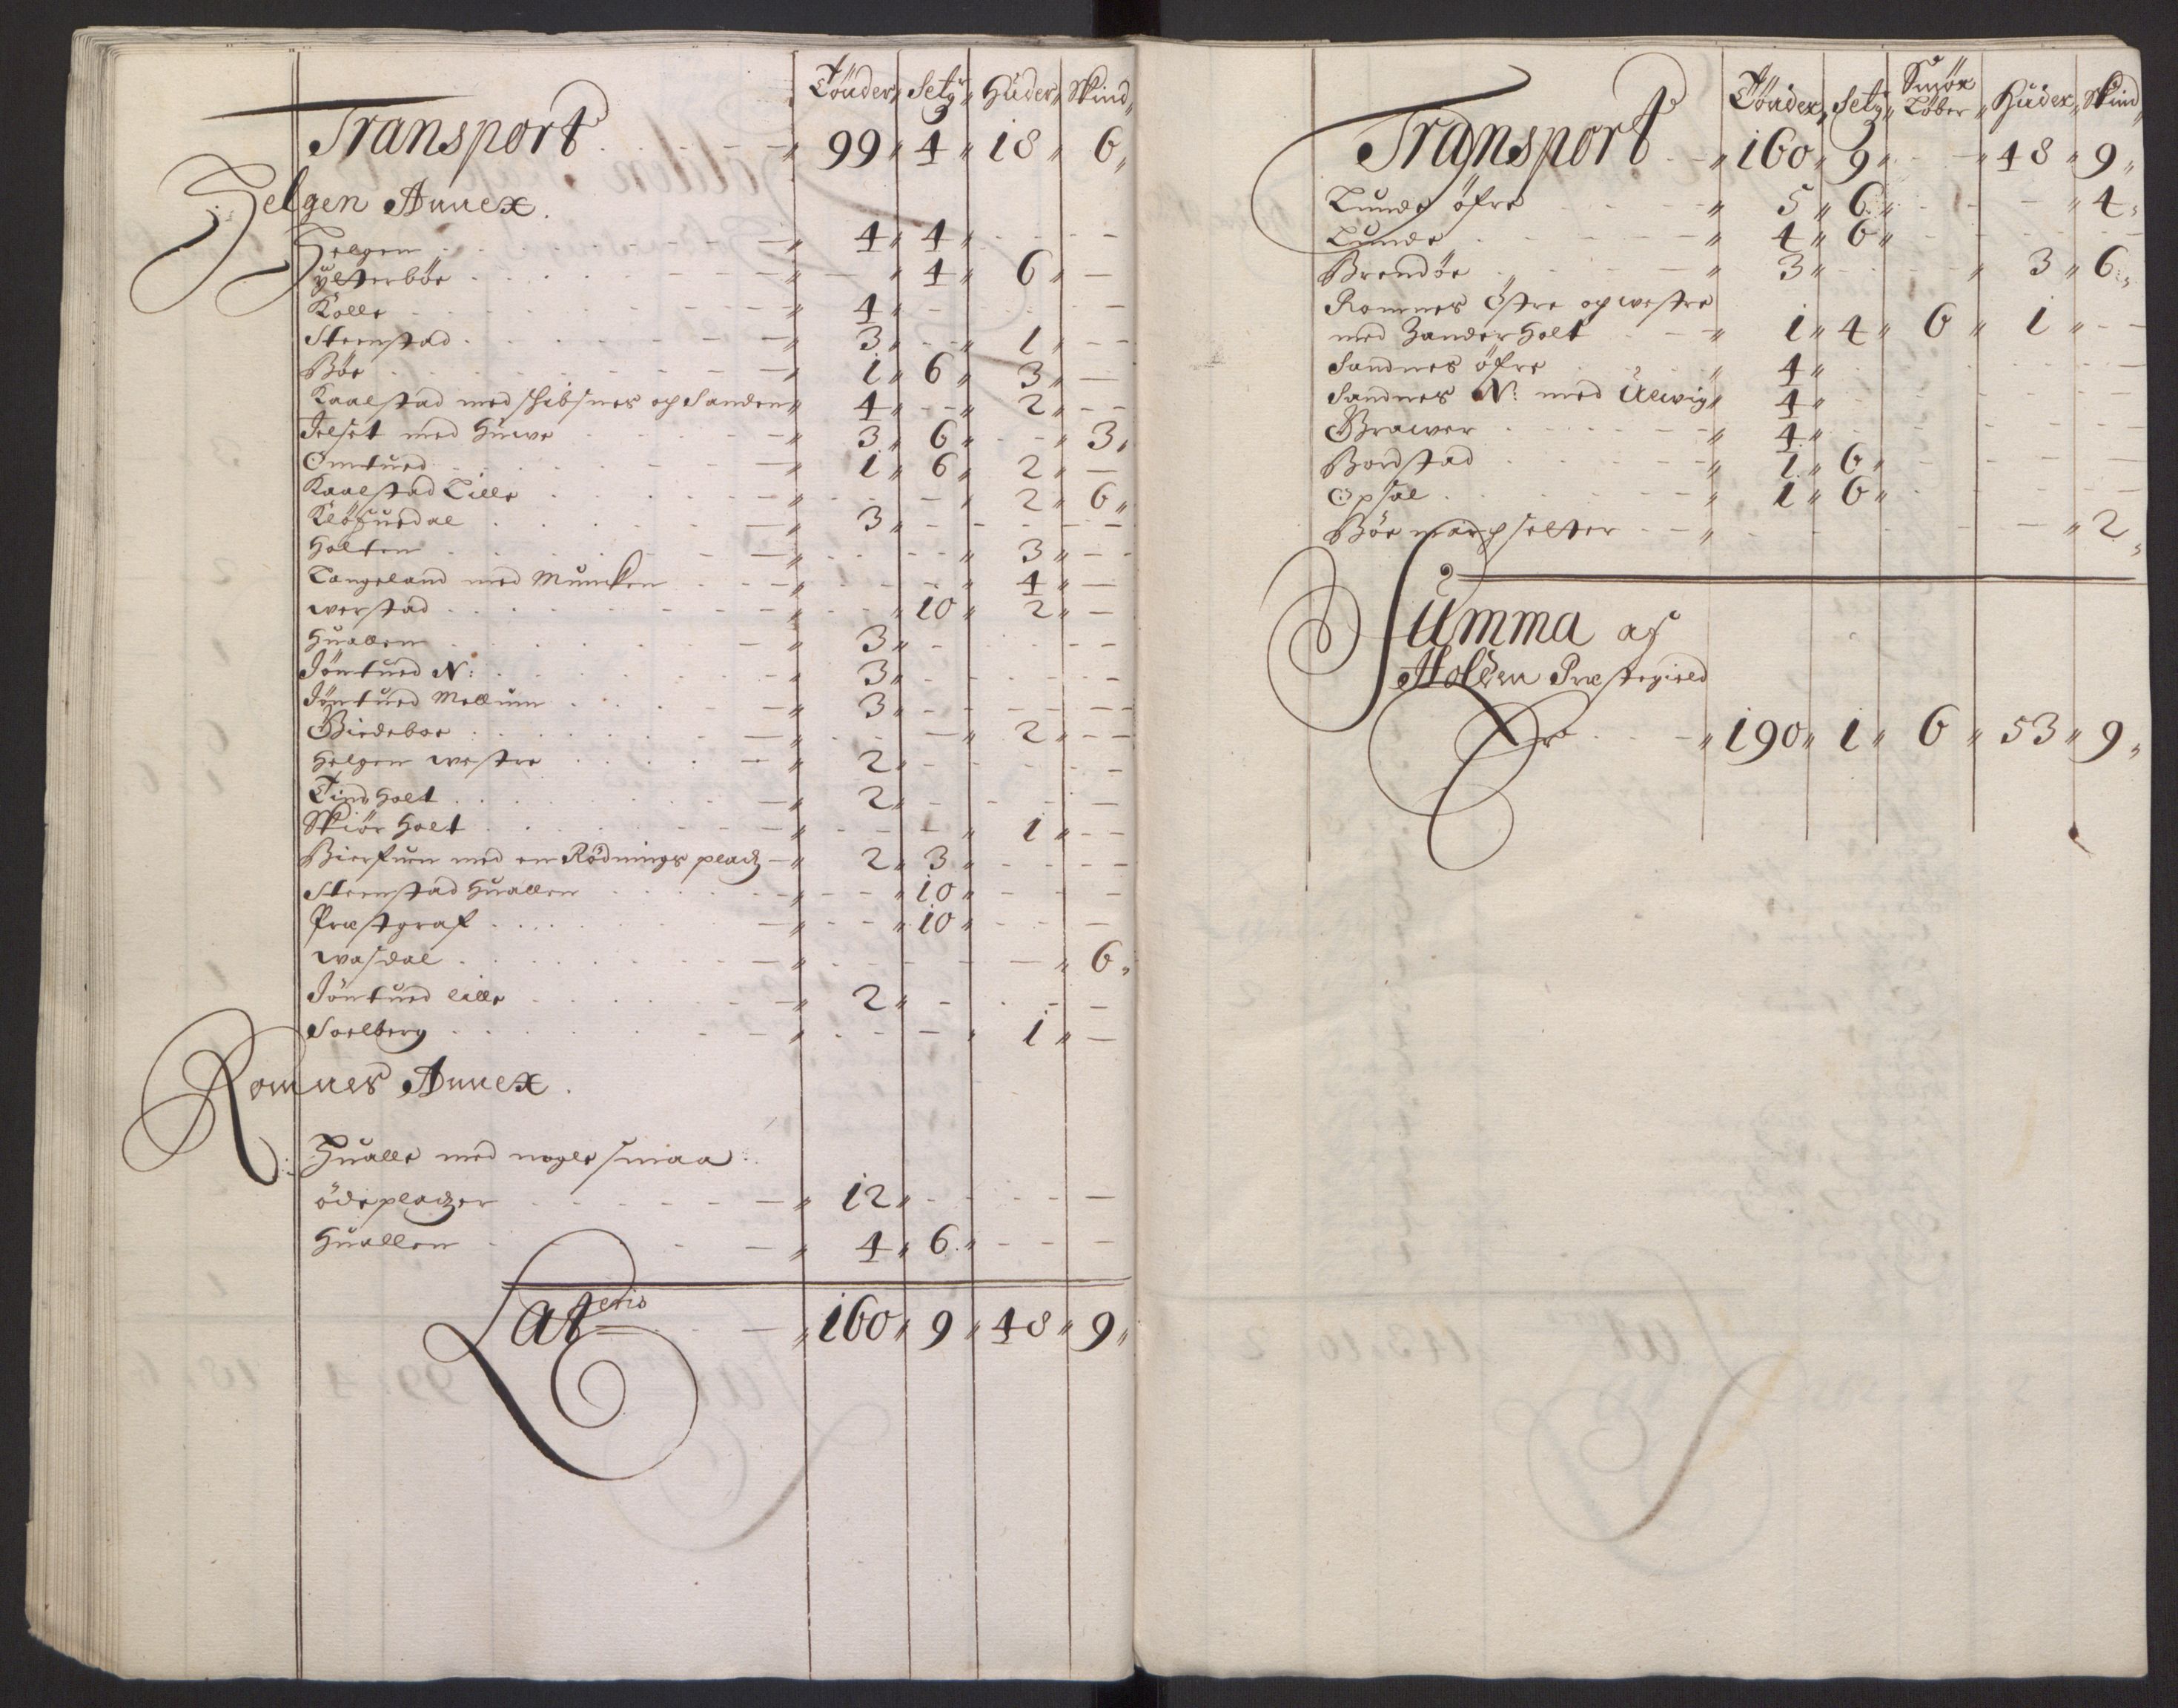 Tönder, Setg, Hüder, Skind,
Transport . . . — „ 99 „ 4 „ 18 „ 6 „
Helgen Annex.
Helgen . . . — „ 4 „ 4 „ - - -
Hylterböe . . . — „ — „ 4 „ 6 „ —
Kolle . . . — „ 4 „ - - -
Steenstad . . . — „ 3 „ - „ 1 „ - -
Böe . . . — „ 1 „ 6 „ 3 „ —
Kaalstad med schibsnes og Sanden „ 4 „ - - „ 2 „ - -
Jelset med Huwe — „ 3 „ 6 „ - - „ 3 „
Omtued . . . — „ 1 „ 6 „ 2 „ —
Kaalstad Lille . . . — „ - - — „ 2 „ 6 „
Klöfuedal . . . — „ 3 „ - - - -
Holten . . . — „ - - - „ 3 „ - -
Langeland med Muncken - - - „ - - - „ 4 „ —
werstad . . . - „ - - „ 10 „ 2 „ —
Huallen . . . - „ 3 „ - - - -
Jöntued N: . . . - „ 3 „ - - - -
Jöntued Mellum . . . — „ 3 „ - - - -
Biedeboe : . . . — „ - - — „ 2 „ - -
Helgen westre . . . — „ 2 „ - - - -
Tindholt . . . — „ 2 „ - - - —
Skiörholt . . . — „ - - - „ 1 „ - -
Bierfuen med en Rödnings pladz — „ 2 „ 3 „ - - - -
Steenstad Huallen . . . - „ - - „ 10 „ - - -
Præstgraf . . . — „ - - „ 10 „ - - —
wasdal . . . — „ - - - — „ 6 „
Jöntued lille . . . — „ 2 „ - - - —
Soelberg . . . — „ - - — „ 1 „ —
Romnes Annex.
Hualle med nogle smaa
ödepladzer . . . — „ 12 „ - - - —
Huallen . . . — „ 4 „ 6 „ - - —
Lateris — „ 160 „ 9 „ 48 „ 9 „
Tönder, Setg, Smör Löber „ Hüder, Skind,
Transport - „ 160 „ 9 „ - - „ 48 „ 9 „
Lunde öfre . . . „ 5 „ 6 „ - - - „ 4 „
Lunde . . . — „ 4 „ 6 „ - - - -
Brendöe . . . — „ 3 „ - - - „ 3 „ 6 „
Romnes Östre og westre
med Zanderholt — „ 1 „ 4 „ 6 „ 1 „ - —
Sandnes öfre . . . „ 4 „ - - - -
Sandnes N: med Ulwig „ 4 „ - - - -
Grawer . . . — „ 4 „ - - - -
Bordstad . . . — „ 1 „ 6 „ - - - -
Opsal . . . — „ 1 „ 6 „ - - - -
Böe selter - — „ - - - - — „ 2 „
Summa af
Holden Præstegield
Er . . . — „ 190 „ 1 „ 6 „ 53 „ 9 „